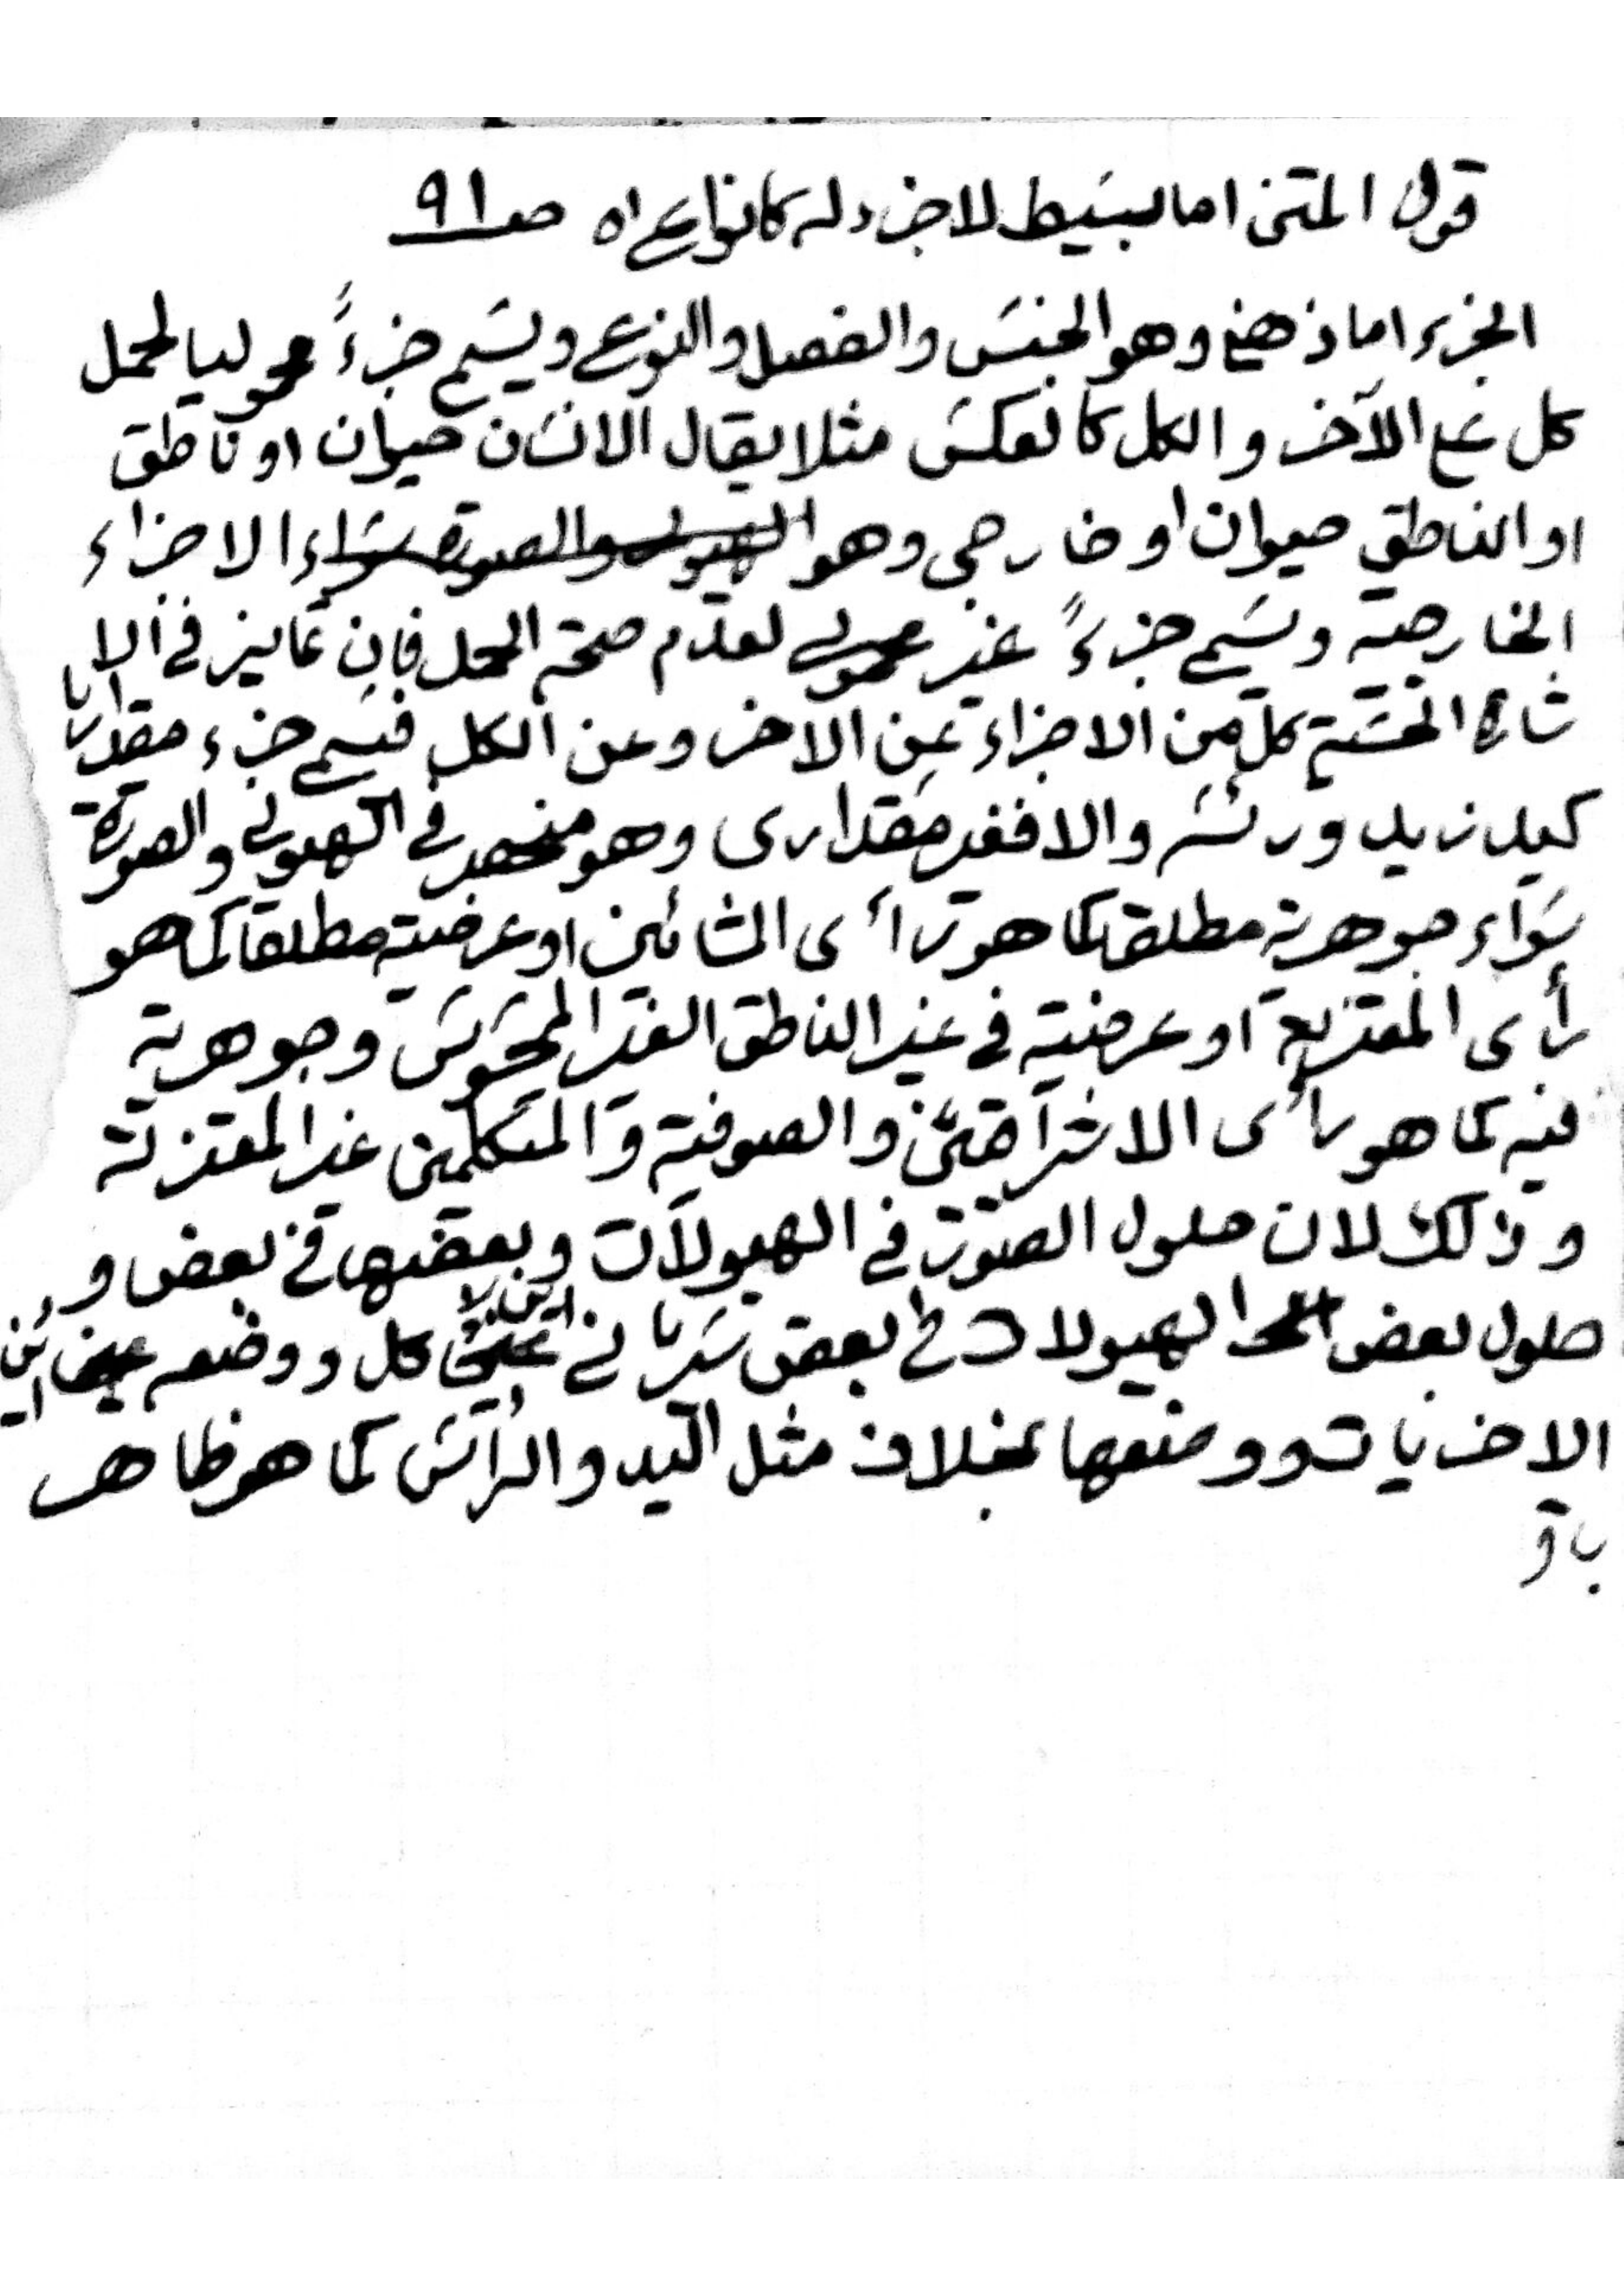 قول المتن اما بسيط لا جزء له كانواع اه صـ ٩١
الجزء اما ذهني وهو الجنس والفصل والنوع ويسمى جزءً محموليا لحمل
كل على الآخر والكل كالعكس مثلا يقال الانسان حيوان او ناطق
او الناطق حيوان او خارجي وهو الاجزاء
الخارجية ويسمى جزءً غير محمولي لعدم صحة الحمل فإن تمايز في الا
شارة الحسية كل من الاجزاء عن الآخر وعن الكل فيسمى جزء مقداريا
كيد زيد ورأسه والا فغير مقدارى وهو منحصر في الهيولى والصورة
سواء جوهرية مطلقا كما هو رأى المشائين او عرضية مطلقا كما هو
رأى المعتزلة او عرضية في غير الناطق الغير المحسوس وجوهرية
فيه كما هو رأى الاشراقيين والصوفية والمتكلمين غير المعتزلة
وذلك لان حلول الصور في الهيولات وبعضها في بعض و
حلول بعض الهيولات في بعض سريانى اين كل ووضعه اين
الاخريات ووضعها بخلاف مثل اليد والرأس كما هو ظاهر
باق